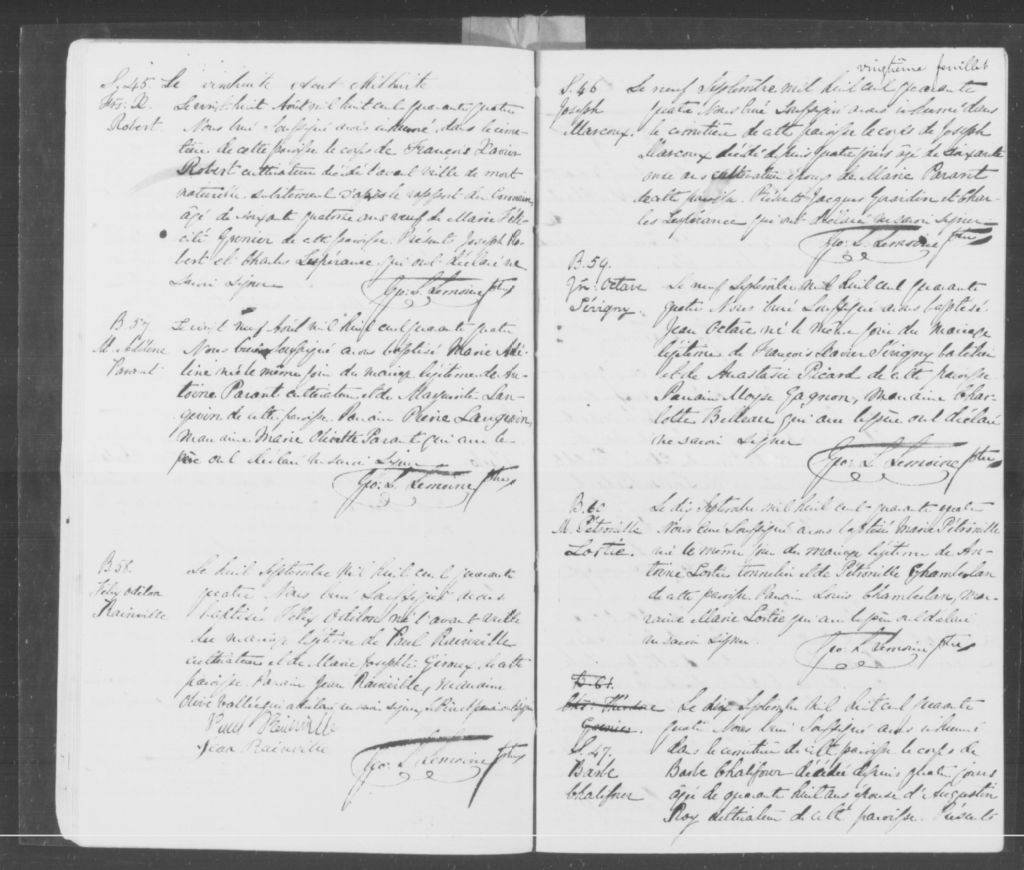 S. 45. Le vinhuite Aout Milhuite
Frs. X. Le vingt huit Aout mil huit cent quarante quatre
Robert. Nous curé soussigné avons inhumé, dans le cime-
tière de cette paroisse le corps de François Xavier
Robert cultivateur décédé l'avant veille de mort
naturelle subitement d'après le rapport du Coroner,
âgé de soixante quatorze ans veuf de Marie Féli-
cité Grenier de cette paroisse. Présents Joseph Ro-
bert et Charles Lespérance qui ont déclaré ne
savoir signer
Geo: L. Lemoine ptre
B. 57. Le vingt neuf Aout mil huit cent quarante quatre
M. Adéline Nous curé soussigné avons baptisé Marie Adé-
Parant line née le même jour du mariage légitime de An-
toine Parant cultivateur et de Marguerite Lan-
gevin de cette paroisse. Parain Pierre Langevin,
maraine Marie Olivette Parant qui avec le
père ont déclaré ne savoir signer
Geo: L. Lemoine ptre
B. 58. Le huit Septembre mil huit cent quarante
Félix Odilon quatre Nous curé soussigné avons
Rainville baptisé Félix Odilon né l'avant veille
du mariage légitime de Paul Rainville
cultivateur et de Marie Josephte Giroux de cette
paroisse. Parain Jean Rainville, maraine
Olive Vallée qui a déclaré ne savoir signer, le Père et parain ont signé
Paul Rainville
Jean Rainville
Geo: L. Lemoine ptre
vingtième feuillet
S. 46 Le neuf Septembre mil huit cent quarante
Joseph quatre Nous curé soussigné avons inhumé dans
Marcoux. le cimetière de cette paroisse le corps de Joseph
Marcoux décédé depuis quatre jours âgé de soixante
onze ans cultivateur époux de Marie Parant
de cette paroisse. Présents Jacques Girardin et Char-
les Lespérance qui ont déclaré ne savoir signer
Geo: L. Lemoine ptre
B. 59.
Jn. Octave Le neuf Septembre mil huit cent quarante
Sévigny. quatre Nous curé soussigné avons baptisé
Jean Octave né le même jour du mariage
légitime de François Xavier Sévigny batelier
et de Anastasie Picard de cette paroisse
Parain Moyse Gagnon, maraine Char-
lotte Belleau qui avec le père ont déclaré
ne savoir signer
Geo: L. Lemoine ptre
B. 60 Le dix Septembre mil huit cent quarante quatre
M. Pétronille Nous curé soussigné avons baptisé Marie Pétronille
Lortie. née le même jour du mariage légitime de An-
toine Lortie tonnelier et de Pétronille Chamberlan
de cette paroisse Parain Louis Chamberlan, ma-
raine Marie Lortie qui avec le père ont déclaré
ne savoir signer.
Geo: L. Lemoine ptre
B. 61.
Le dix Septembre mil huit cent quarante
Grenier. quatre Nous curé soussigné avons inhumé
S. 47. dans le cimetière de cette paroisse le corps de
Barbe Barbe Chalifour décédée depuis quatre jours
Chalifour âgée de quarante huit ans épouse d'Augustin
Roy cultivateur de cette paroisse. Présents